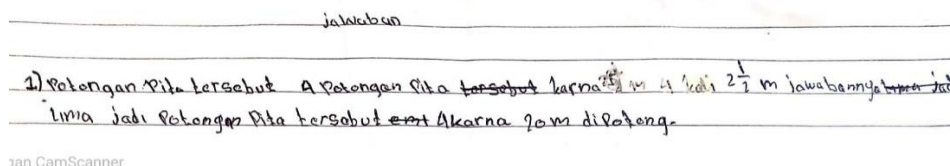 jawaban
1) Potongan Pita tersebut 4 Potongan Pita tersebut karna 4 kali 2 1/2 m jawabannya
lima jadi Potongan Pita tersebut 4 karna 20m dipotong.
an CamScanner